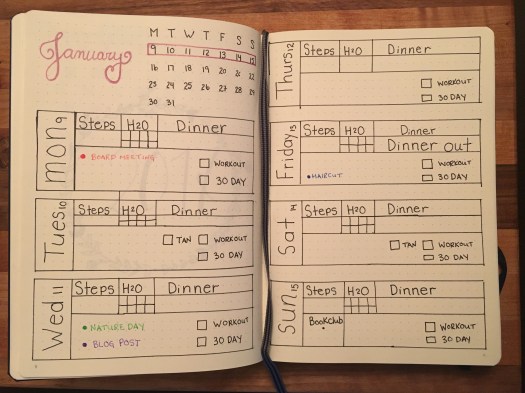 January
M T W T F S S
9 10 11 12 13 14 15
16 17 18 19 20 21 22
23 24 25 26 27 28 29
30 31
Mon 9
Steps H2O Dinner
• BOARD MEETING
WORKOUT
30 DAY
Tues 10
Steps H2O Dinner
TAN WORKOUT
30 DAY
Wed 11
Steps H2O Dinner
• NATURE DAY WORKOUT
• BLOG POST 30 DAY
Thurs 12
Steps H2O Dinner
WORKOUT
30 DAY
Friday 13
Steps H2O Dinner
Dinner out
• HAIRCUT WORKOUT
30 DAY
Sat 14
Steps H2O Dinner
TAN WORKOUT
30 DAY
Sun 15
Steps H2O Dinner
Bookclub
WORKOUT
30 DAY